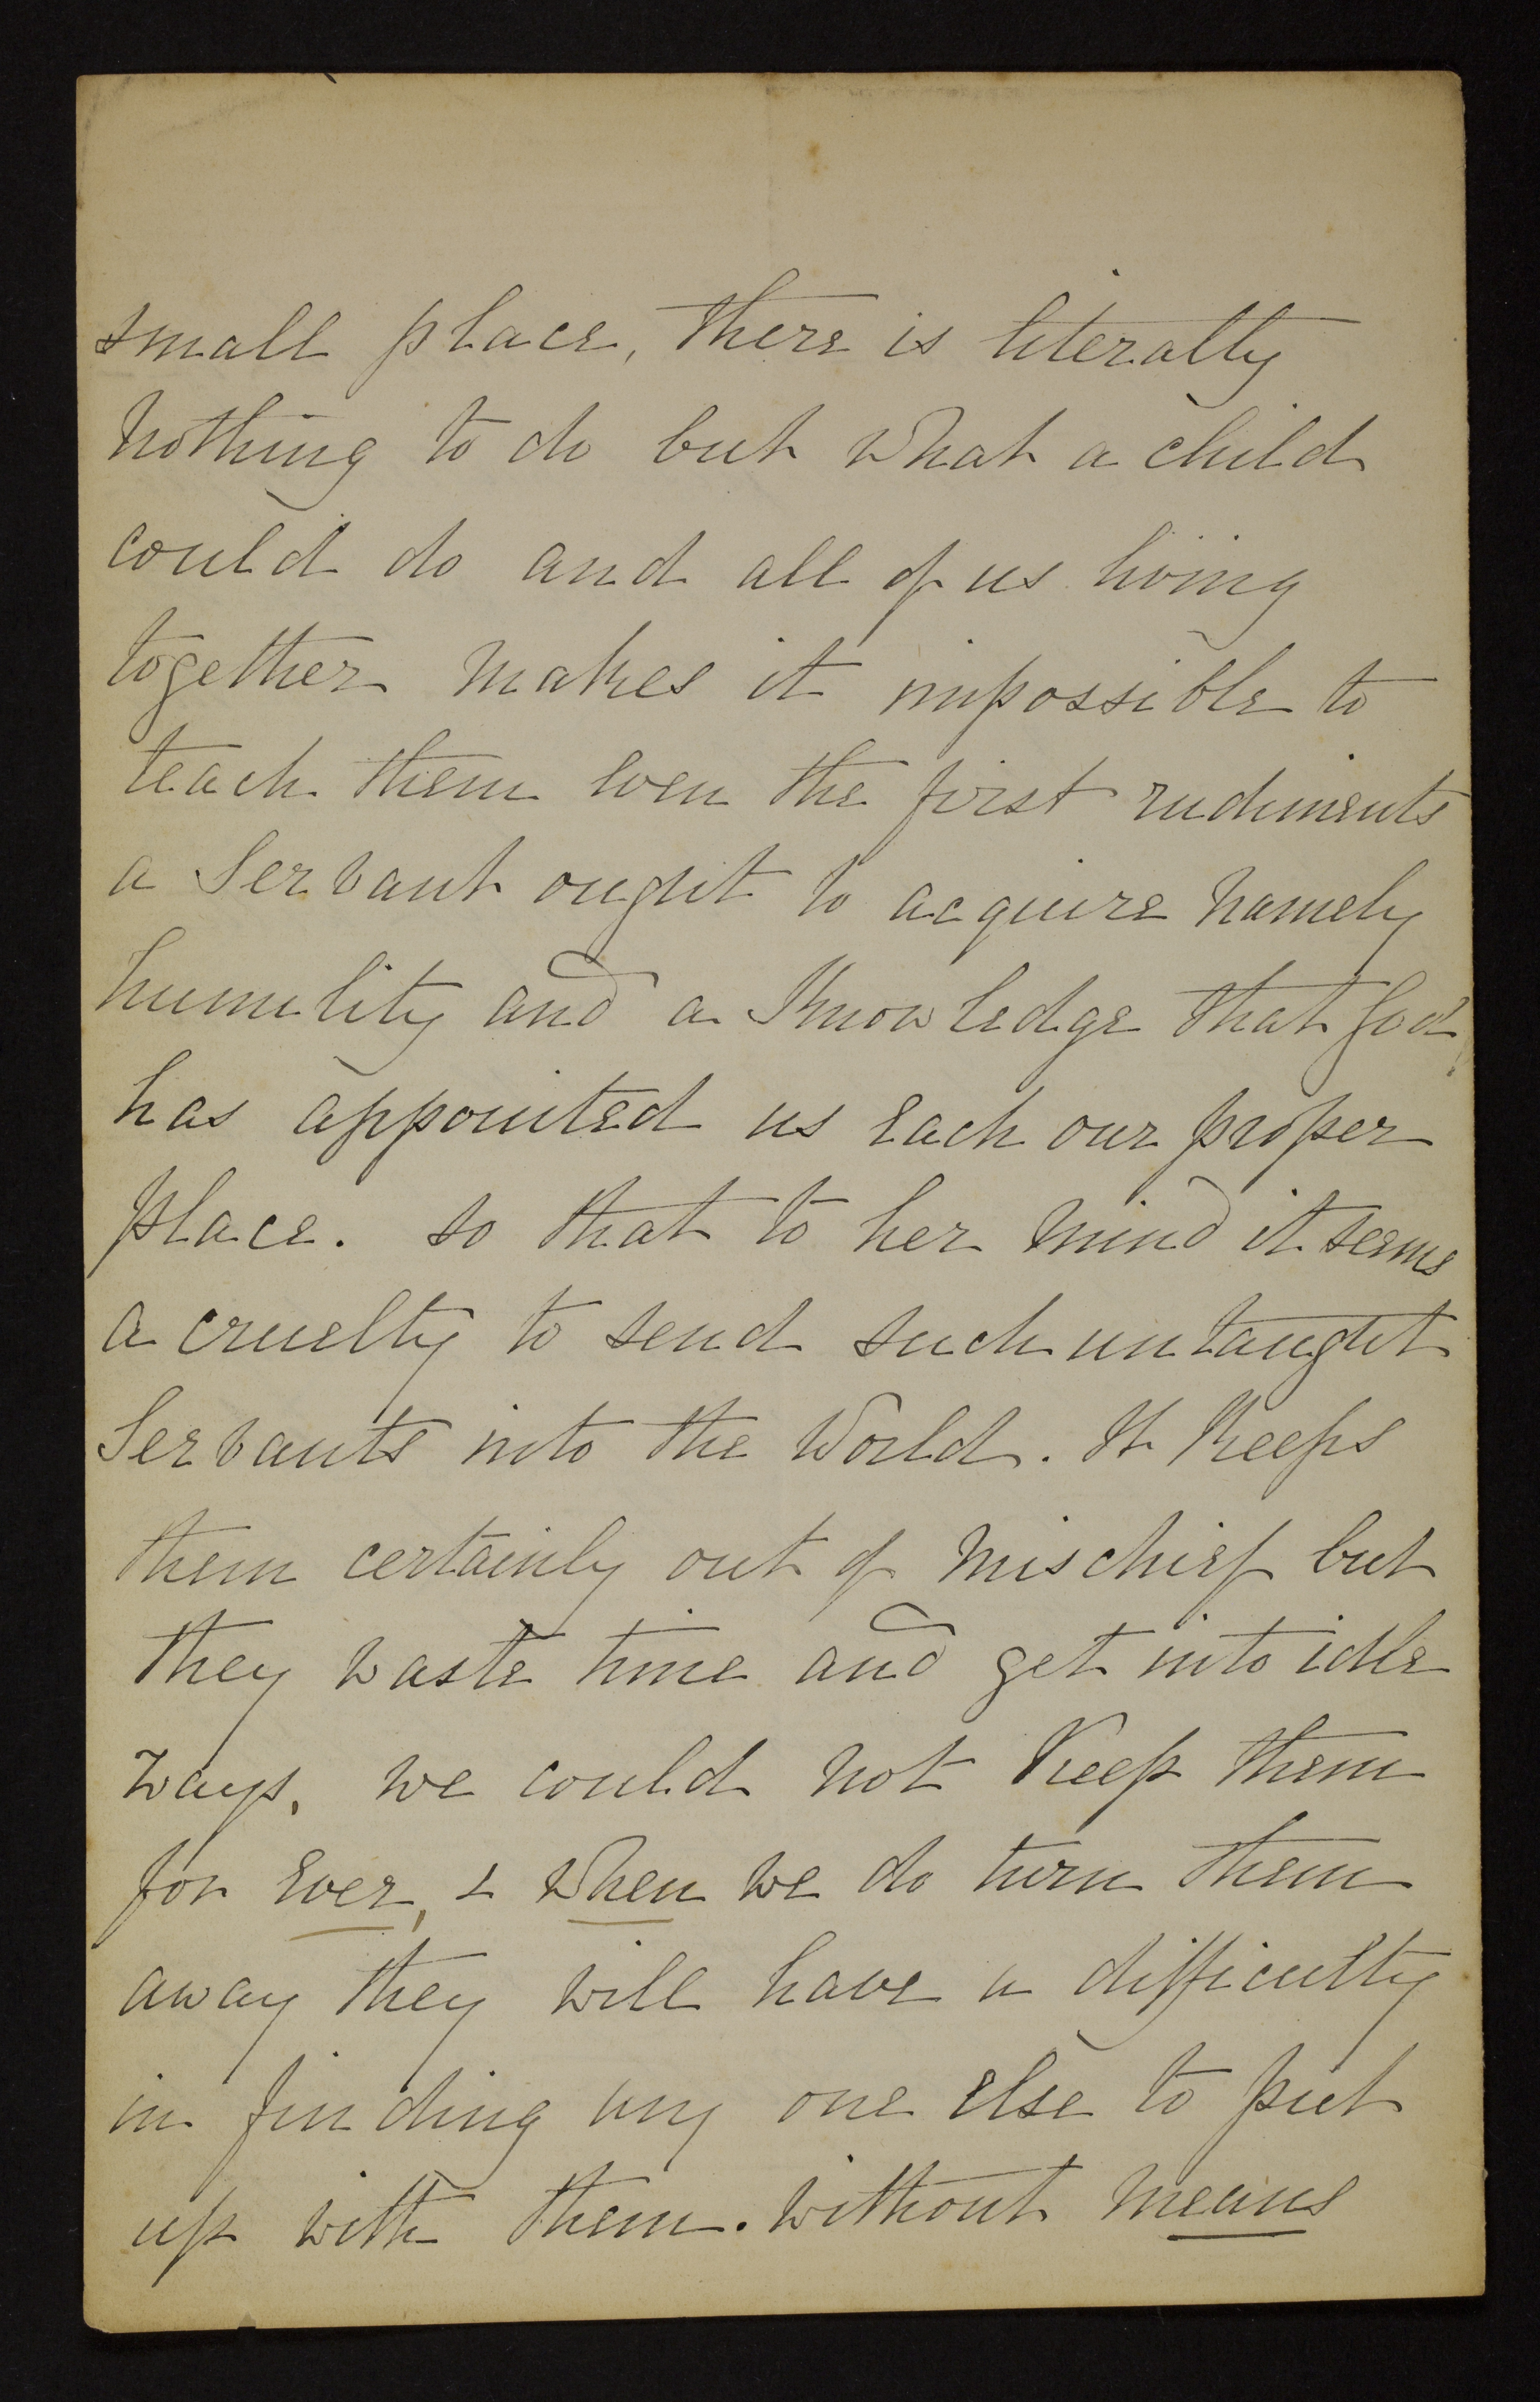 small place, there is literally
nothing to do but what a child
could do and all of us living
together makes it impossible to
teach them even the first rudiments
a Servant ought to acquire namely
humility and a Knowledge that God
has appointed us each our proper
place. so that to her mind it seems
a cruelty to send such untaught
Servants into the World. It Keeps
them certainly out of mischief but
they waste time and get into idle
ways. we could not Keep them
for ever, & when we do turn them
away they will have a difficulty
in finding any one else to put
up with them. without means